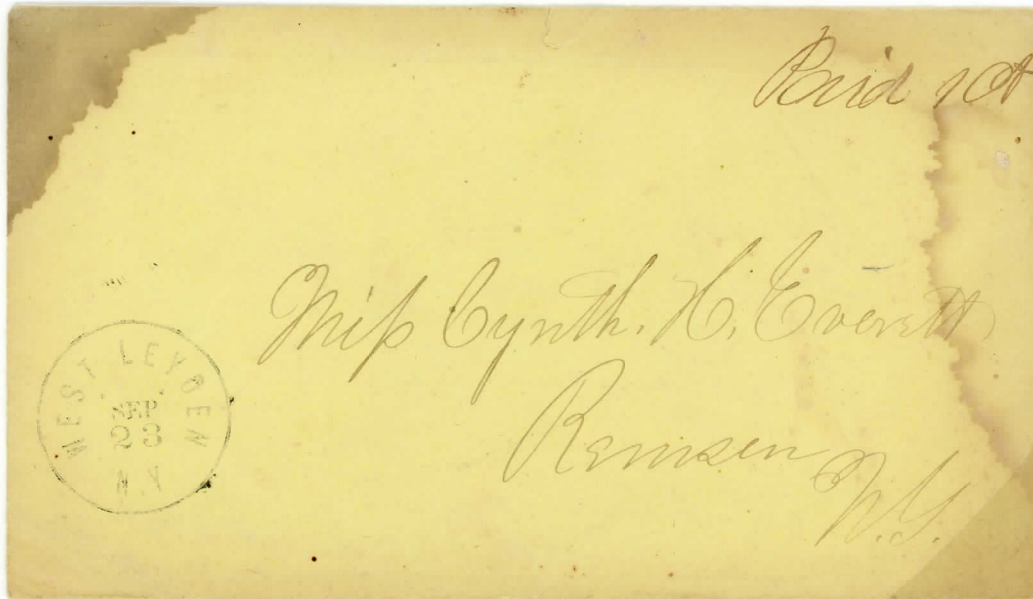 Paid 1 ct
Miss Cynth. H. Everett
Remsen
N.Y.
WEST LEYDEN
SEP
23
N.Y